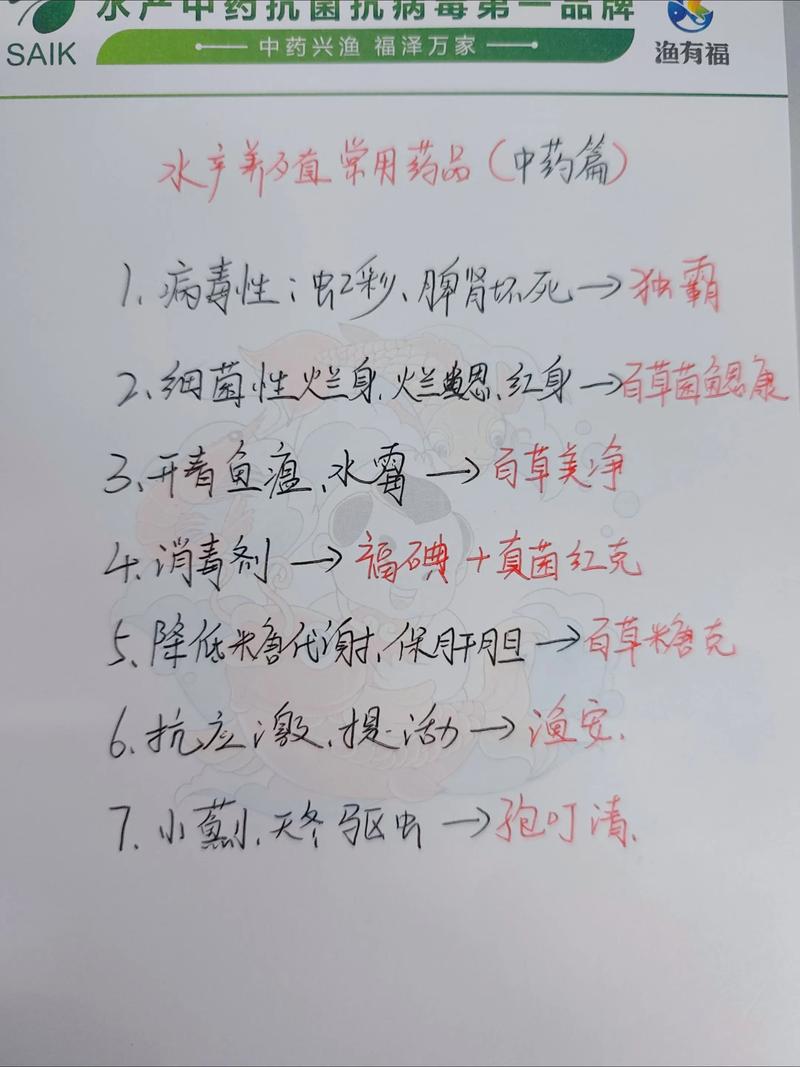 水产中药抗菌抗病毒第一品牌
SAIK
中药兴渔 福泽万家
渔有福
水产养殖常用药品(中药篇)
1、病毒性:虹彩、脾肾坏死→独霸
2、细菌性烂身、烂鳃、红身→百草菌鳃康
3、开春鱼瘟、水霉→百草美净
4、消毒剂→福碘+真菌红克
5、降低糖代谢、保肝胆→百草糖克
6、抗应激、提活→渔安、
7、小、驱虫→孢叮清、